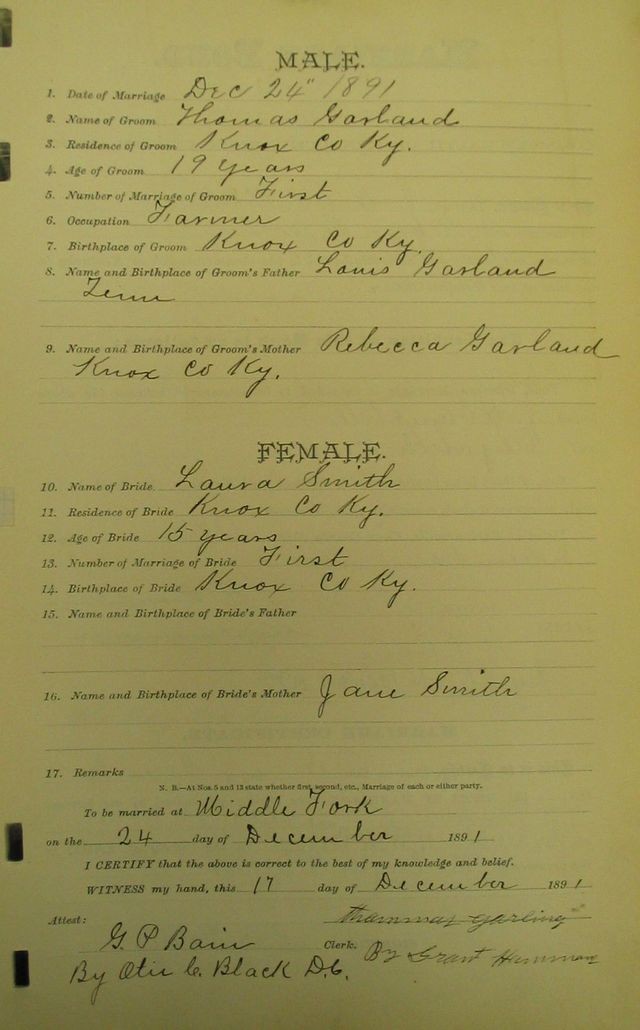 MALE.
1. Date of Marriage Dec 24" 1891
2. Name of Groom Thomas Garland
3. Residence of Groom Knox Co Ky.
4. Age of Groom 19 years
5. Number of Marriage of Groom First
6. Occupation Farmer
7. Birthplace of Groom Knox Co Ky.
8. Name and Birthplace of Groom's Father Louis Garland
Tenn
9. Name and Birthplace of Groom's Mother Rebecca Garland
Knox Co Ky.
FEMALE.
10. Name of Bride Laura Smith
11. Residence of Bride Knox Co Ky.
12. Age of Bride 15 years
13. Number of Marriage of Bride First
14. Birthplace of Bride Knox Co Ky.
15. Name and Birthplace of Bride's Father
16. Name and Birthplace of Bride's Mother Jane Smith
17. Remarks
N. B.—At Nos. 5 and 13 state whether first, second, etc., Marriage of each or either party.
To be married at Middle Fork
on the 24 day of December 1891
I CERTIFY that the above is correct to the best of my knowledge and belief.
WITNESS my hand, this 17 day of December 1891
Attest:
G. P. Bain Clerk. By Grant
By Otis C. Black D.C.